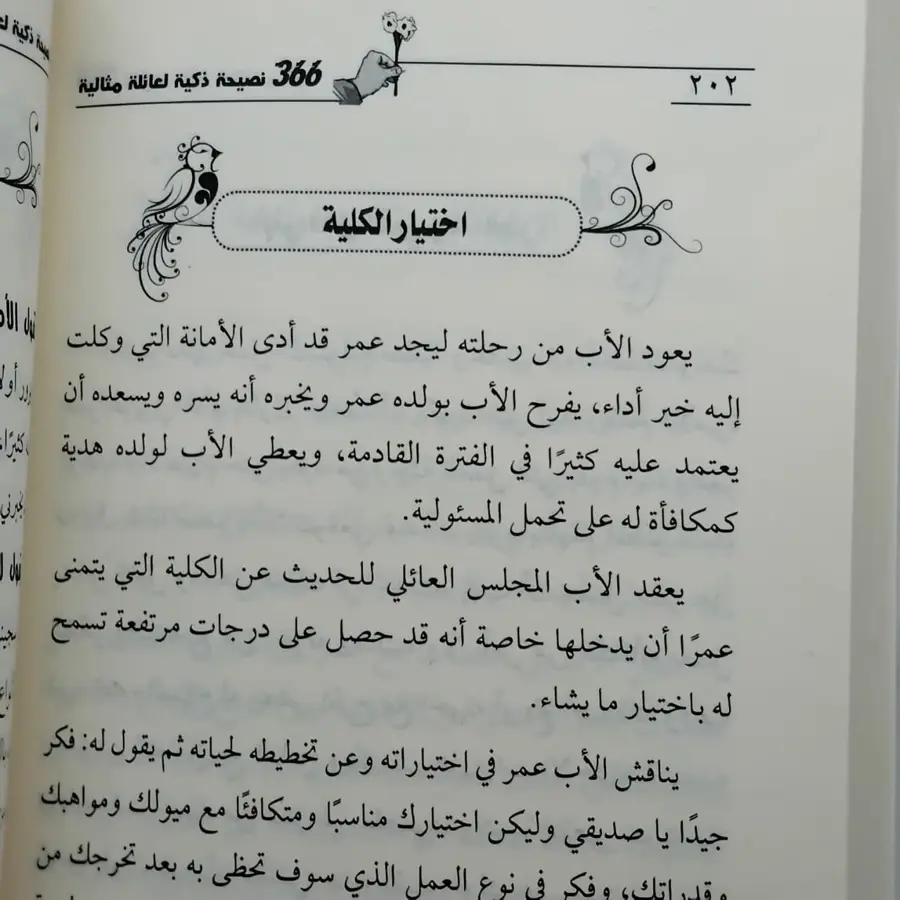 366 نصيحة ذكية لعائلة مثالية
٢٠٢
اختيار الكلية
يعود الأب من رحلته ليجد عمر قد أدى الأمانة التي وكلت
إليه خير أداء، يفرح الأب بولده عمر ويخبره أنه يسره ويسعده أن
يعتمد عليه كثيرًا في الفترة القادمة، ويعطي الأب لولده هدية
كمكافأة له على تحمل المسئولية.
يعقد الأب المجلس العائلي للحديث عن الكلية التي يتمنى
عمرًا أن يدخلها خاصة أنه قد حصل على درجات مرتفعة تسمح
له باختيار ما يشاء.
يناقش الأب عمر في اختياراته وعن تخطيطه لحياته ثم يقول له: فكر
جيدًا يا صديقي وليكن اختيارك مناسبًا ومتكافئًا مع ميولك ومواهبك
وقدراتك، وفكر في نوع العمل الذي سوف تحظى به بعد تخرجك من